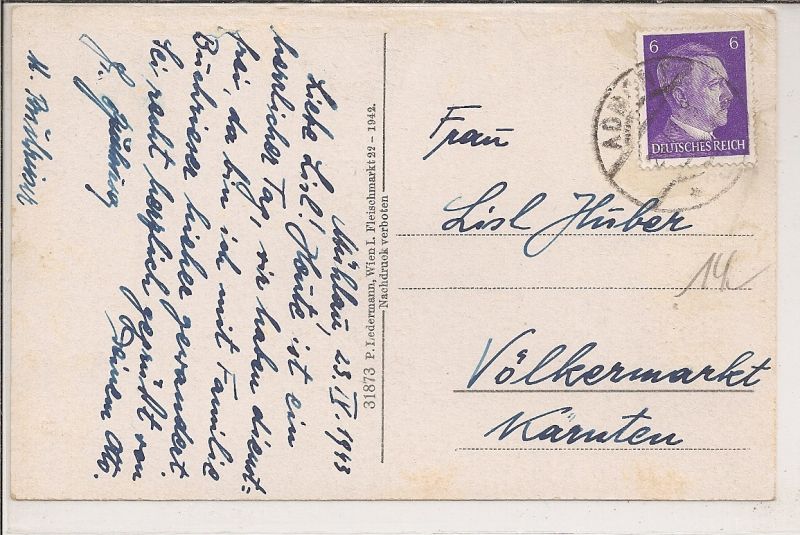 Mühlau, 23. IV. 1943
Liebe Lisl! Heute ist ein
herrlicher Tag, wir haben dienst=
frei, da bin ich mit Familie
hieher gewandert
Sei recht herzlich gegrüßt von
Deinem Otto.
Frau
Lisl Huber
Völkermarkt
Kärnten
14
6 6
DEUTSCHES REICH
ADMONT
31873 P. Ledermann, Wien I. Fleischmarkt 22 – 1942.
Nachdruck verboten